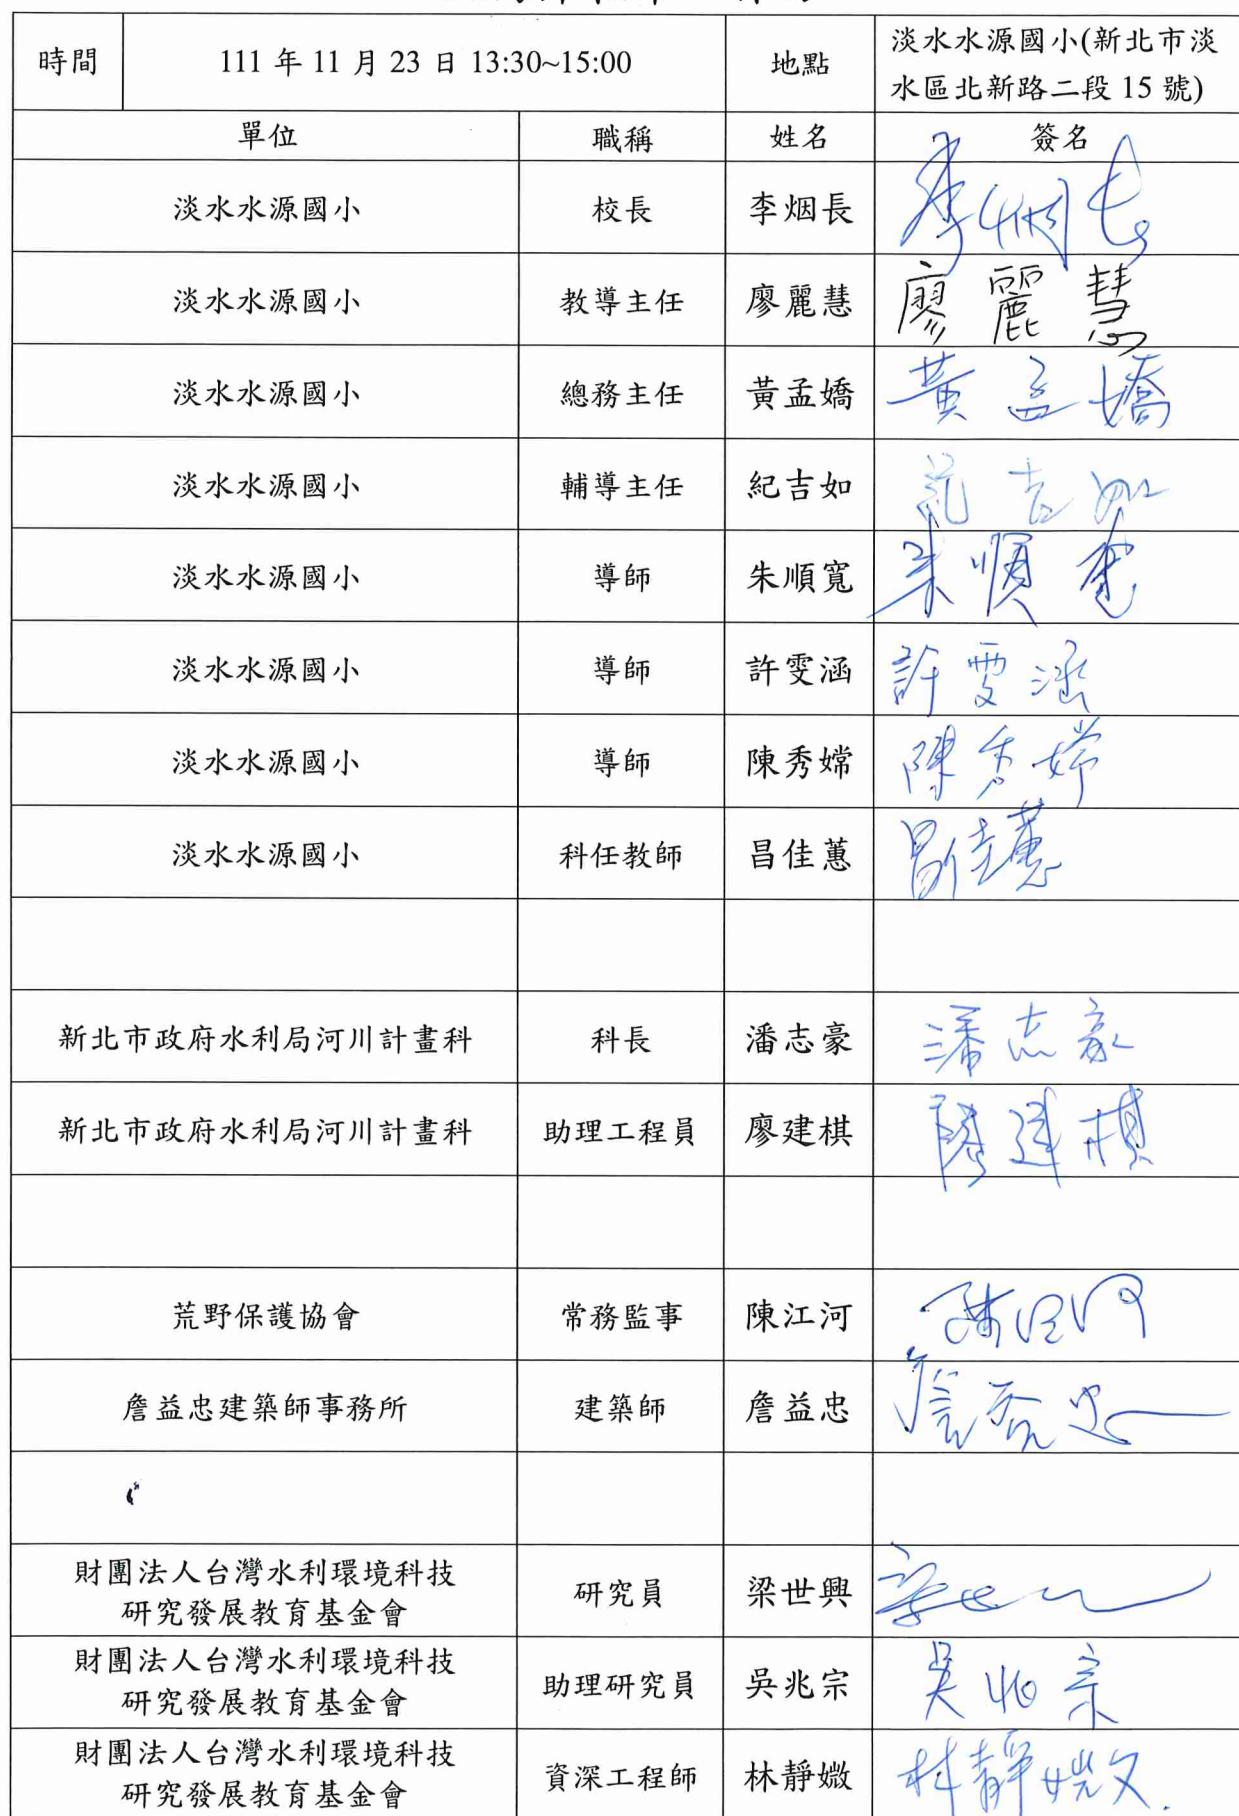 時間 111 年 11 月 23 日 13:30~15:00 地點 淡水水源國小(新北市淡
水區北新路二段 15 號)
單位 職稱 姓名 簽名
淡水水源國小 校長 李烟長 李烟長
淡水水源國小 教導主任 廖麗慧 廖麗慧
淡水水源國小 總務主任 黃孟嬌 黃孟嬌
淡水水源國小 輔導主任 紀吉如 紀吉如
淡水水源國小 導師 朱順寬 朱順寬
淡水水源國小 導師 許雯涵 許雯涵
淡水水源國小 導師 陳秀嫦 陳秀嫦
淡水水源國小 科任教師 昌佳蕙 昌佳蕙
新北市政府水利局河川計畫科 科長 潘志豪 潘志豪
新北市政府水利局河川計畫科 助理工程員 廖建棋 廖建棋
荒野保護協會 常務監事 陳江河 陳江河
詹益忠建築師事務所 建築師 詹益忠 詹益忠
財團法人台灣水利環境科技
研究發展教育基金會 研究員 梁世興
財團法人台灣水利環境科技
研究發展教育基金會 助理研究員 吳兆宗 吳兆宗
財團法人台灣水利環境科技
研究發展教育基金會 資深工程師 林靜媺 林靜媺